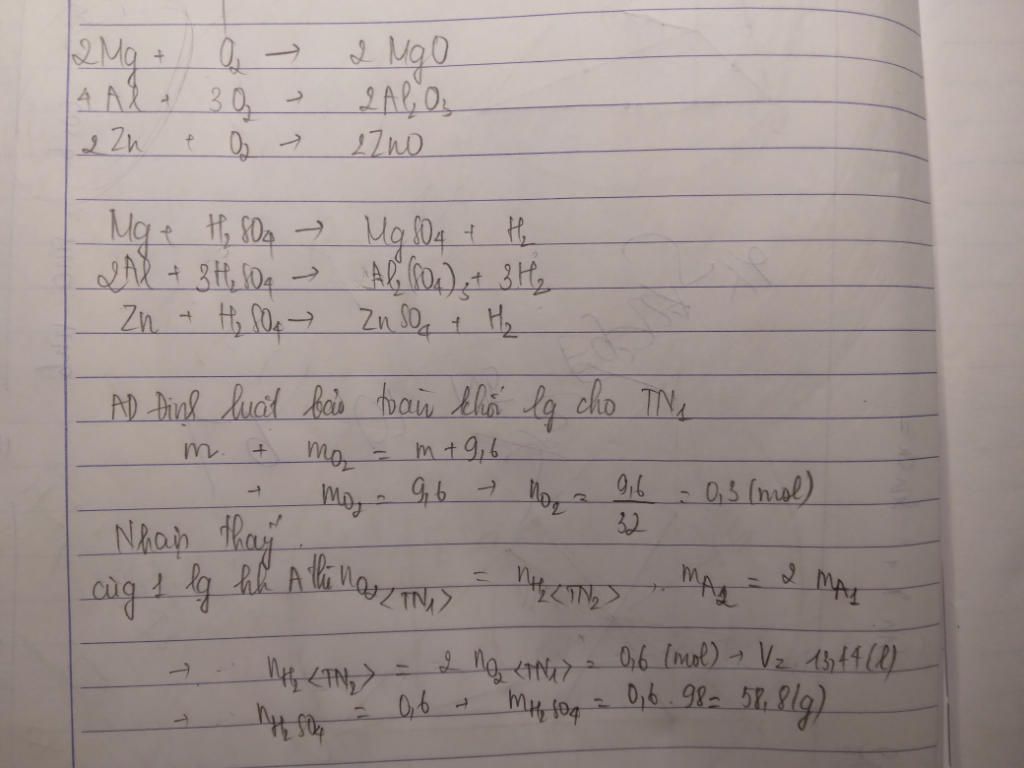 2Mg + O₂ → 2MgO
4Al + 3O₂ → 2Al₂O₃
2Zn + O₂ → 2ZnO
Mg + H₂SO₄ → MgSO₄ + H₂
2Al + 3H₂SO₄ → Al₂(SO₄)₃ + 3H₂
Zn + H₂SO₄ → ZnSO₄ + H₂
AD Định luật bảo toàn khối lg cho TN₁
m + mO₂ = m + 9,6
→ mO₂ = 9,6 → nO₂ = 9,6/32 = 0,3 (mol)
Nhận thấy
cùg 1 lg hh A thì nO₂<TN₁> = nH₂<TN₂> . mA₂ = 2 mA₁
→ nH₂<TN₂> = 2 nO₂<TN₁> = 0,6 (mol) → V = 13,44 (l)
→ nH₂SO₄ = 0,6 → mH₂SO₄ = 0,6 . 98 = 58,8 (g)